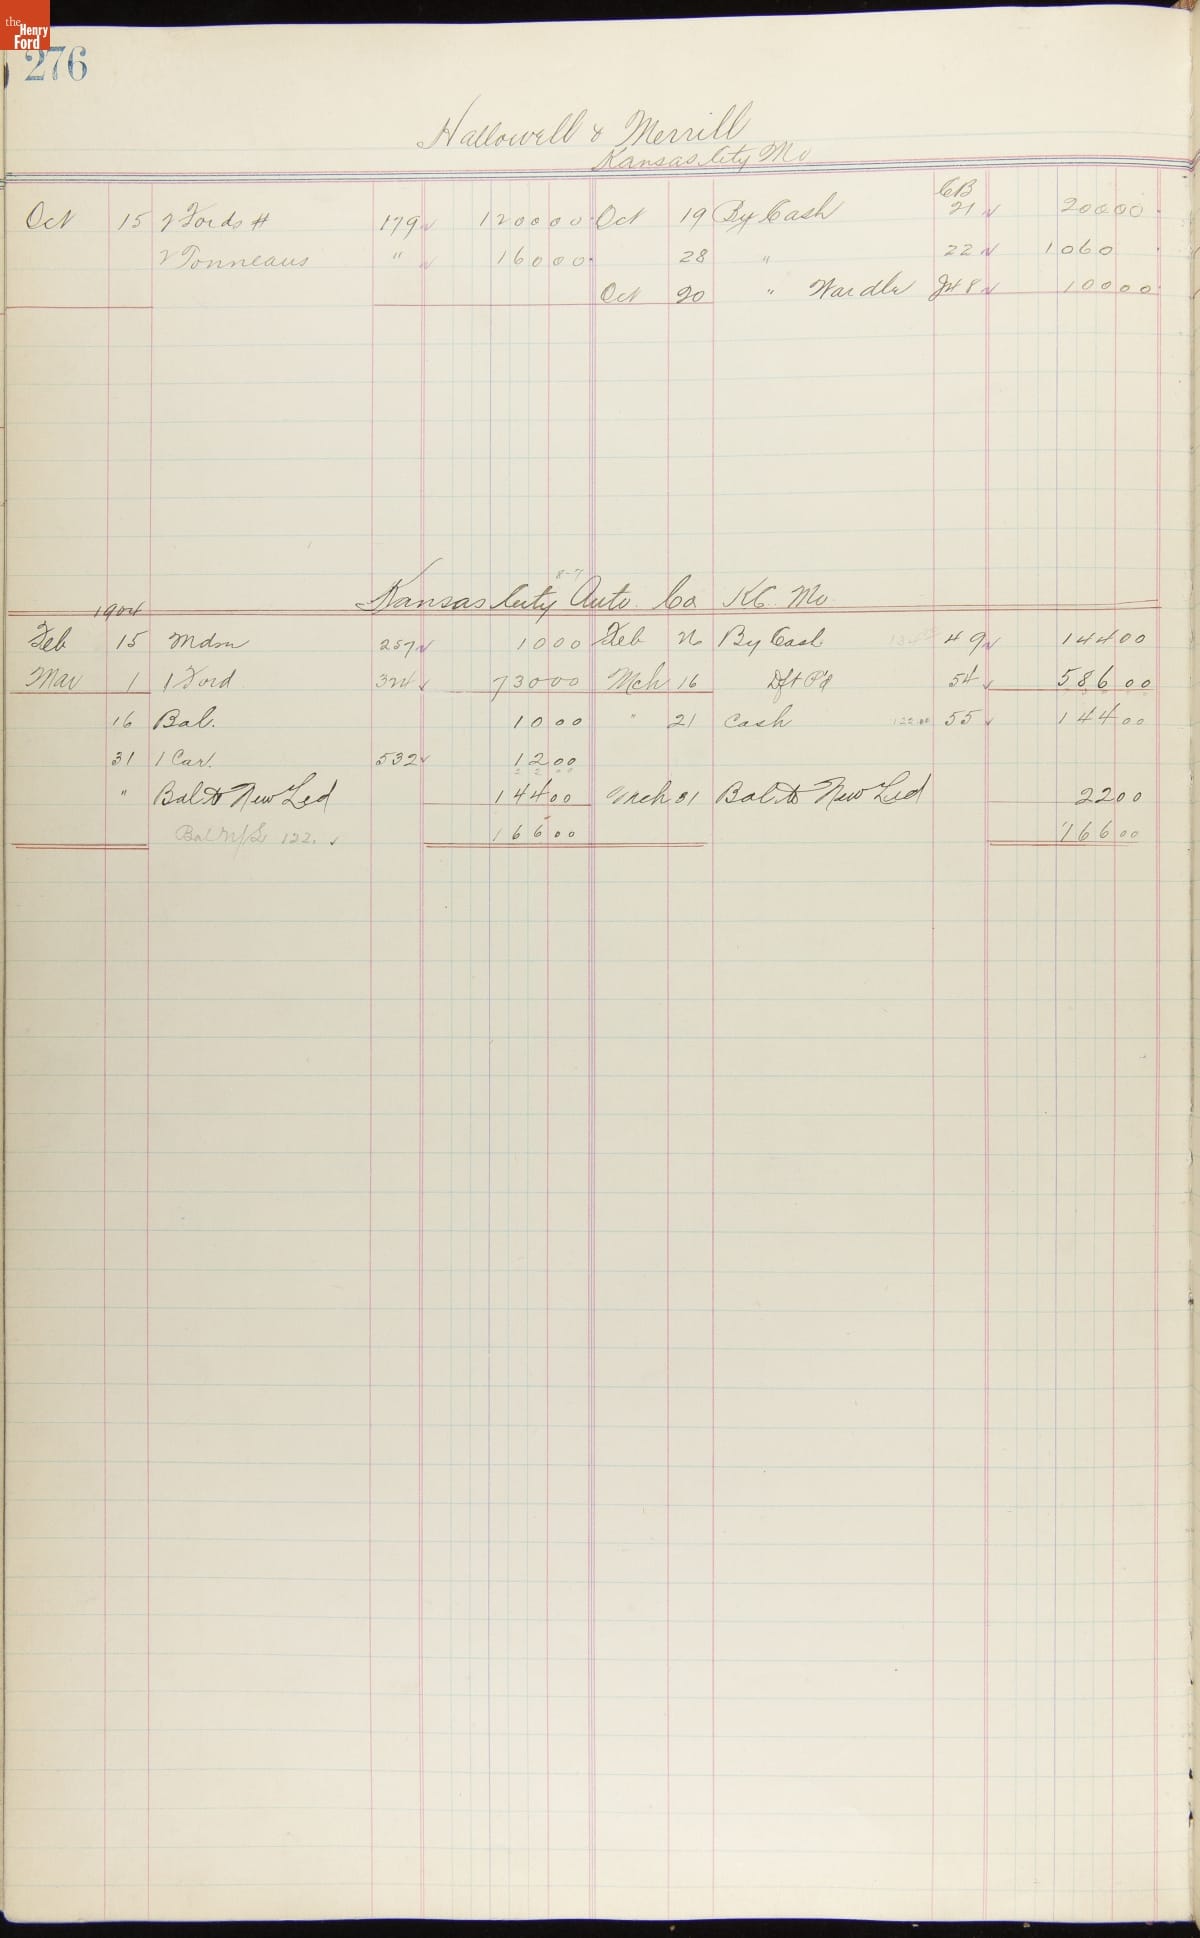 the Henry Ford
276
Hallowell & Merrill
Kansas City Mo
CB
Oct 15 2 Fords # 179 1200 00 Oct 19 By Cash 21 200 00
2 Tonneaus " 160 00 28 " 22 1060
Oct 20 " Wardle 8 100 00
8-7
Kansas City Auto. Co K.C. Mo
1904
Feb 15 Mdse 257 10 00 Feb 26 By Cash 49 144 00
Mar 1 1 Ford 324 730 00 Mch 16 Dft Pd 54 586 00
16 Bal. 10 00 " 21 Cash 122.00 55 144 00
31 1 Car. 532 12 00
22 00
" Bal to New Led 144 00 Mch 31 Bal to New Led 22 00
Bal N/L 122. 166 00 166 00